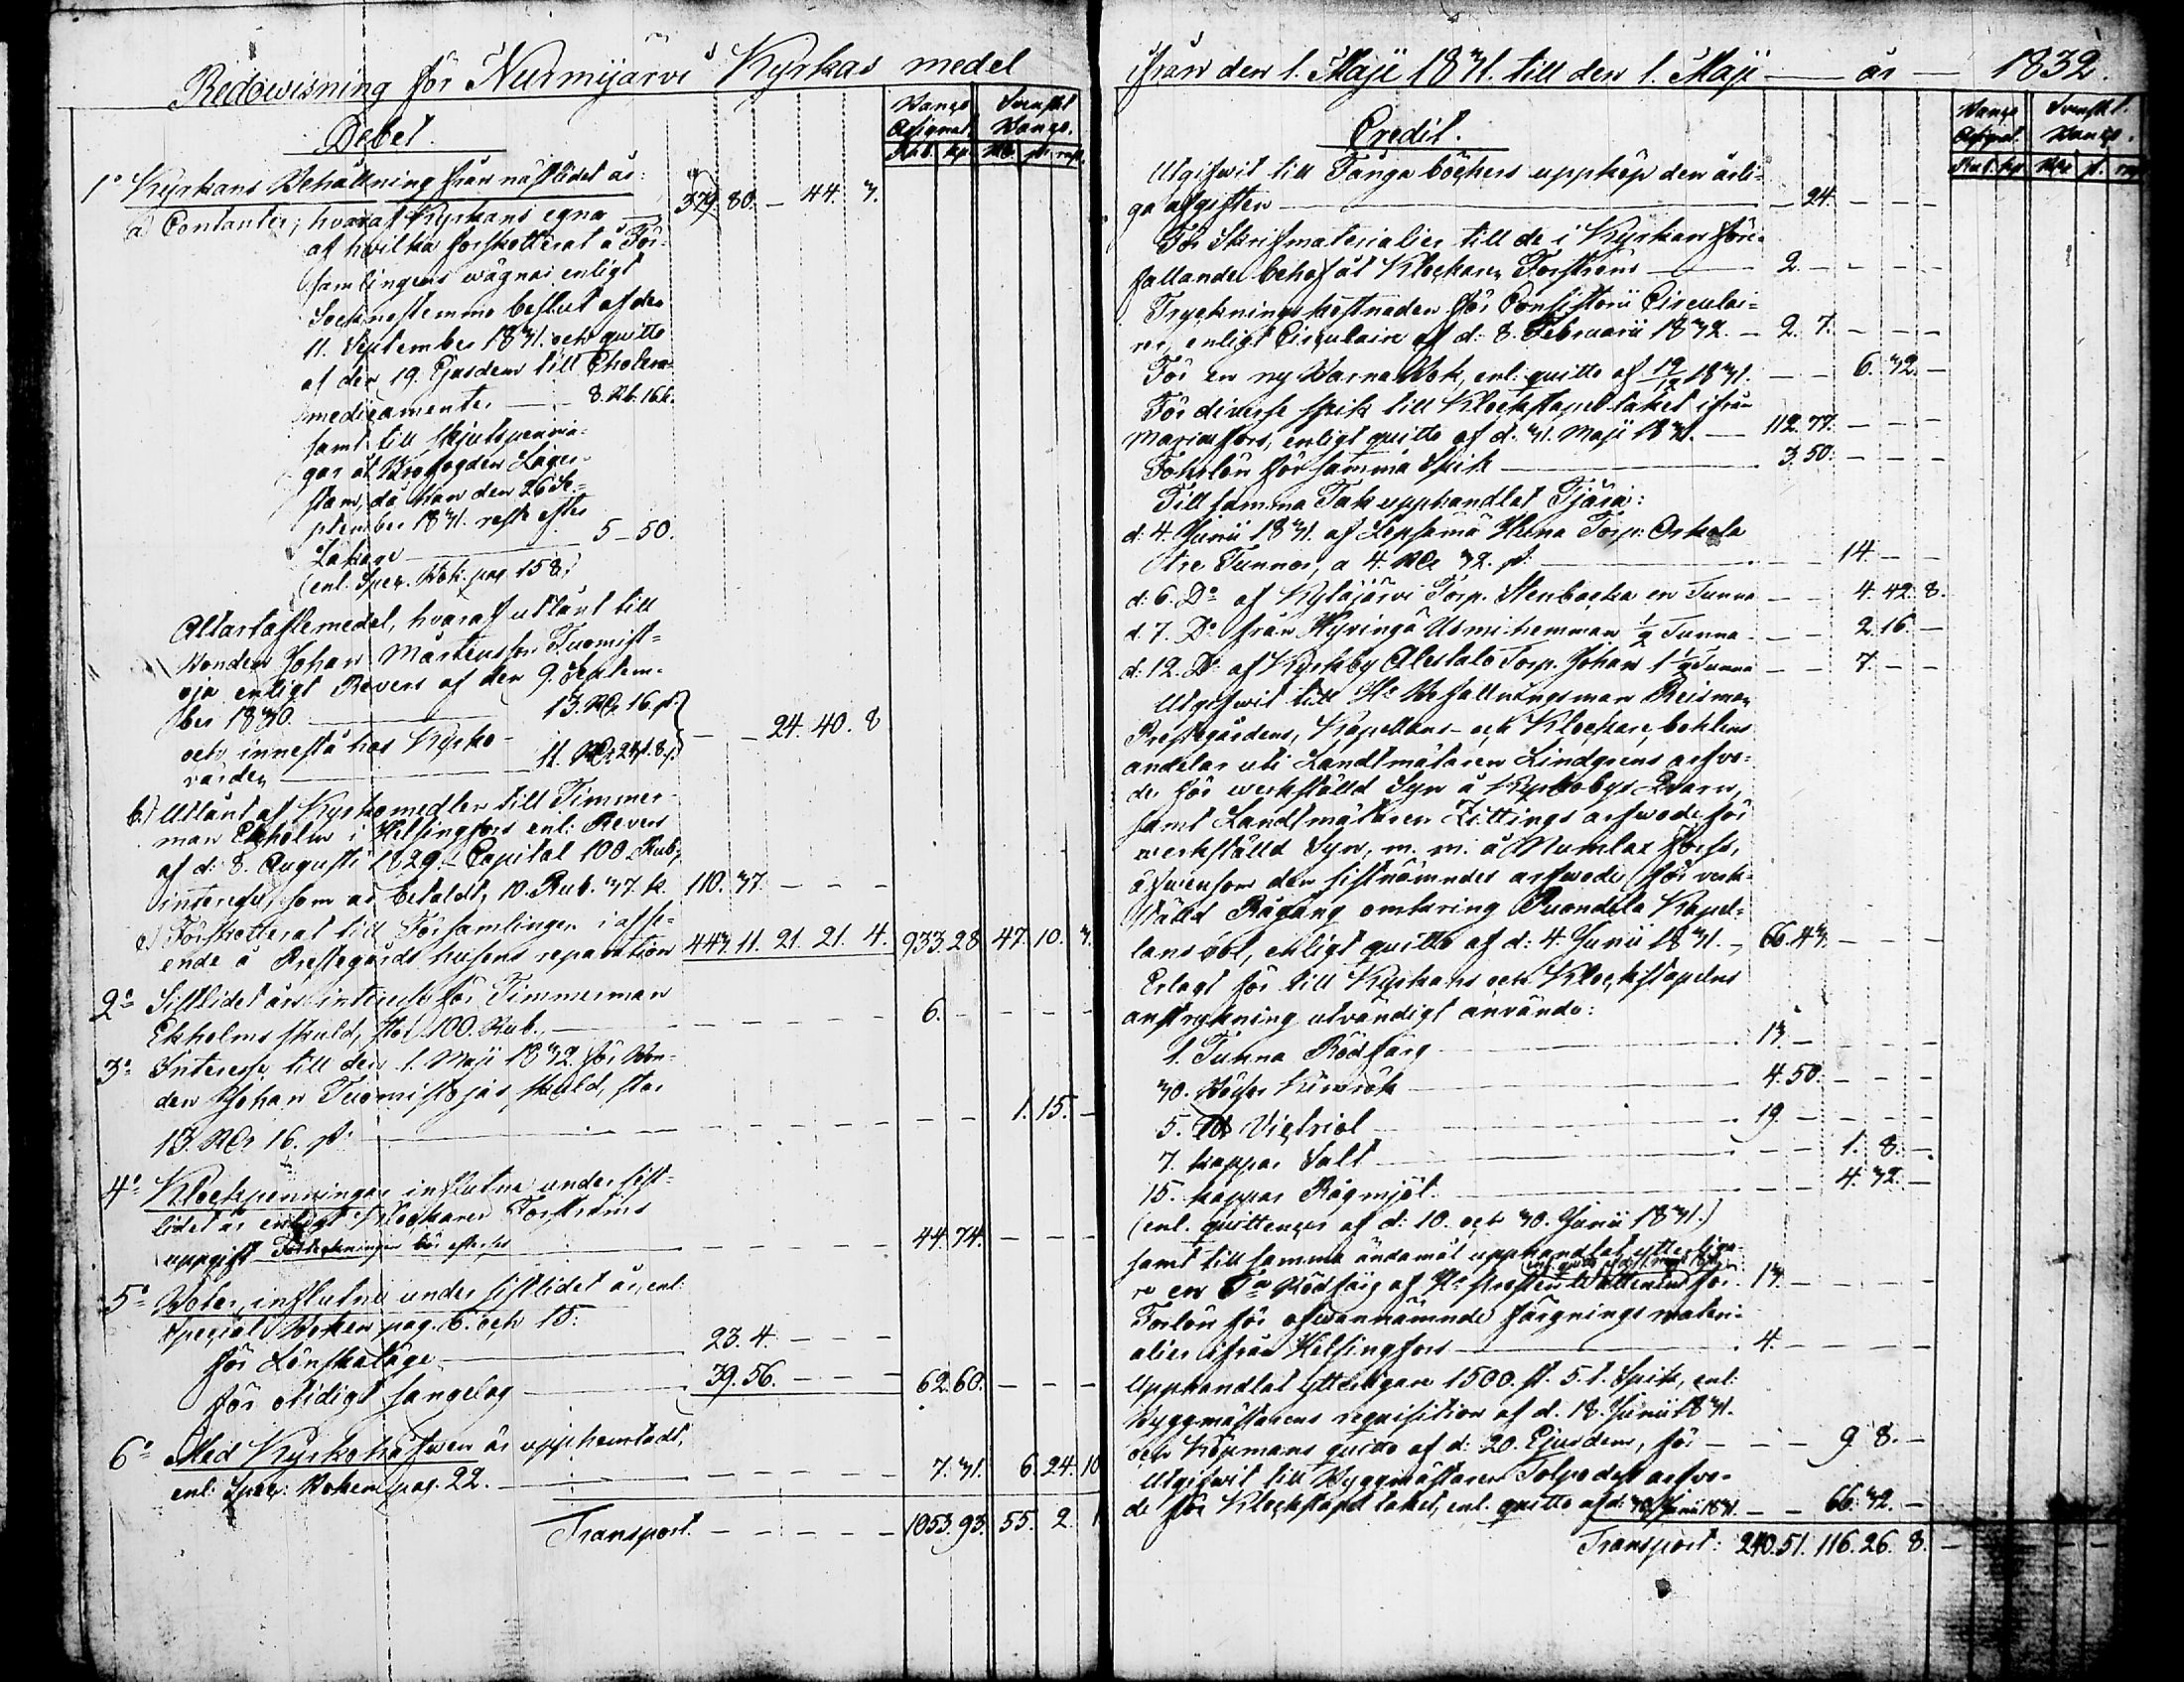 Redowisning för Nurmijärvi Kyrkas medel
Debet.
Banco Assignat. Svenskt Banco.
Rub. kp. RDr sk. rst.
1º Kyrkans Behållning från nästlidet år:
a) Contanter, hvaraf Kyrkans egna — 379. 80. — 44. 3.
af hvilka förskotterat å För-
samlingens vägnar enligt
Sockenstemmo beslut af den
11. September 1831. och quitto
af den 19. Ejusdem till Cholera-
medicamenter — 8. Rb. 16 k.
samt till skjutspennin-
gar åt Brofogden Lager-
stam, då han den 26 Se-
ptember 1831. reste efter
Läkare — 5-50.
(enl. Spec. Bok. pag. 158)
Altartaflemedel, hvaraf utlånt till
Bonden Johan Mårtensson Tuomist-
oja enligt Revers af den 9. Septem-
ber 1830. — 13. RDr 16. sk.
och innestå hos Kyrko-
värden — 11. RDr 24 s. 8 r. — — 24. 40. 8
b.) Utlånt af Kyrkomedlen till Timmer-
man Ekholm i Helsingfors enl: Revers
af d: 8. Augusti 1829. Capital 100 Rub,
interesse, som är betaldt, 10. Rub. 37. k. 110. 37. — — —
c.) Förskotterat till Församlingen i afse-
ende å Prestegårds husens reparation 443. 11. 21. 21. 4. 933. 28 47. 10. 3.
2º Sistlidet års interesse för Timmerman
Ekholms skuld, stor 100. Rub. — 6. — — —
3º Interesse till den 1. Maji 1832. för Bon-
den Johan Tuomistojas skuld, stor
13. RDr 16. sk: — — — 1. 15. —
4º Klockpenningar influtne under sist-
lidet år enligt Klockaren Forstréns
uppgift Förteckningen bör efterses — 44. 74. — — —
5º Böter, influtne under sistlidet år, enl:
Special Boken pag. 6. och 15:
för Lönskaläge — 23. 4. — — —
för otidigt sängelag — 39. 56. — — — 62. 60. — — —
6º Med Kyrkohåfven är upphemtadt,
enl: Spec: Boken pag. 22. — 7. 31. 6. 24. 10
Transport. — — — — — 1053. 93. 55. 2. 1
ifrån den 1. Maji 1831. till den 1. Maji — år — 1832.
Credit.
Banco Assignat. Svenskt. Banco.
Rub. kp RDr sk. rst
Utgifvit till Fånga böckers uppköp den årli-
ga afgiften — — 24. — — —
För Skrifmaterialier till de i Kyrkan före-
fallande behof åt Klockaren Forstréns — 2. — — — —
Tryckningskostnaden för Consistorii Circulai-
rer, enligt Circulaire af d: 8. Februarii 1832. — 2. 7. — — —
För en ny Barna Bok, enl: quitto af 19/12 1831. — — 6. 32. —
För diverse spik till Klockstapel taket ifrån
Mariæfors, enligt quitto af d. 31. Maji 1831. — 112. 77. — — —
Forlön för samma Spik — 3. 50. — — —
Till samma Tak upphandlat Tjära:
d: 4. Junii 1831. af Lepsämä Torp: Orhola
tre Tunnor, a 4. RDr 32. sk: — — — 14. — —
d: 6. Dº af Kytäjärvi Torp. Stenbacka en Tunna — — 4. 42. 8.
d. 7. Dº från Hyvingä Usmi hemman ½ Tunna — — 2. 16. —
d: 12. Dº af Kyrkby Alestalo Torp. Johan 1 ½ Tunna — — 7. — —
Utgifwit till Hr Befallningsman Reisman
Prestgårdens, Kapellans- och Klockarebohlens
andelar uti Landtmätaren Lindgrens arfvo-
de för werkställd Syn å Kyrkobys Qvarn,
samt Landtmätaren Zittings arfwode för
werkställd Syn, m. m. å Numlax fors,
äfvensom den sistnämndes arfwode för verk-
ställd Rågång omkring Puondila Kapel-
lans bol, enligt quitto af d: 4. Junii 1831. — 66. 43. — — —
Erlagt för till Kyrkans och Klockstapelns
anstrykning utvändigt använde:
1. Tunna Rödfärg — 13. — — — —
30. Böttor Kimrök — 4. 50. — — —
5. Lb Victriol — 19. — — — —
7. kappar Salt — — — 1. 8. —
15. kappar Rågmjöl. — — — 4. 32. —
(enl. quittencer af d: 10. och 30. Junii 1831.)
samt till samma ändamål upphandlat ytterliga-
re en Ta Rödfärg af Hr Prosten Wallenius för 13. — — — —
Forlön för ofwannämnde färgnings mater-
alier ifrån Helsingfors — 4. — — — —
Upphandlat ytterligare 1500. st. 5. t. Spik, enl:
Byggmästarens requisition af d. 18. Junii 1831.
och Köpmans quitto af d: 20. Ejusdem, för — — — 9. 8. —
Utgifwit till Byggmästaren Tolpo dess arfvo-
de för Klockstapel taket, enl. quitto af d: 30. Junii 1831. — — 66. 32. —
Transport: 240. 51. 116. 26. 8. — — —